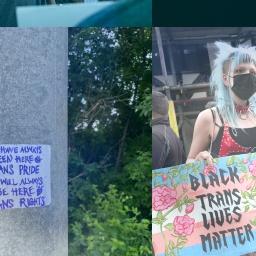 HAVE ALWAYS
EEN HERE
ANS PRIDE
WILL ALWAYS
BE HERE
ANS RIGHTS
BLACK
TRANS
LIVES
MATTER